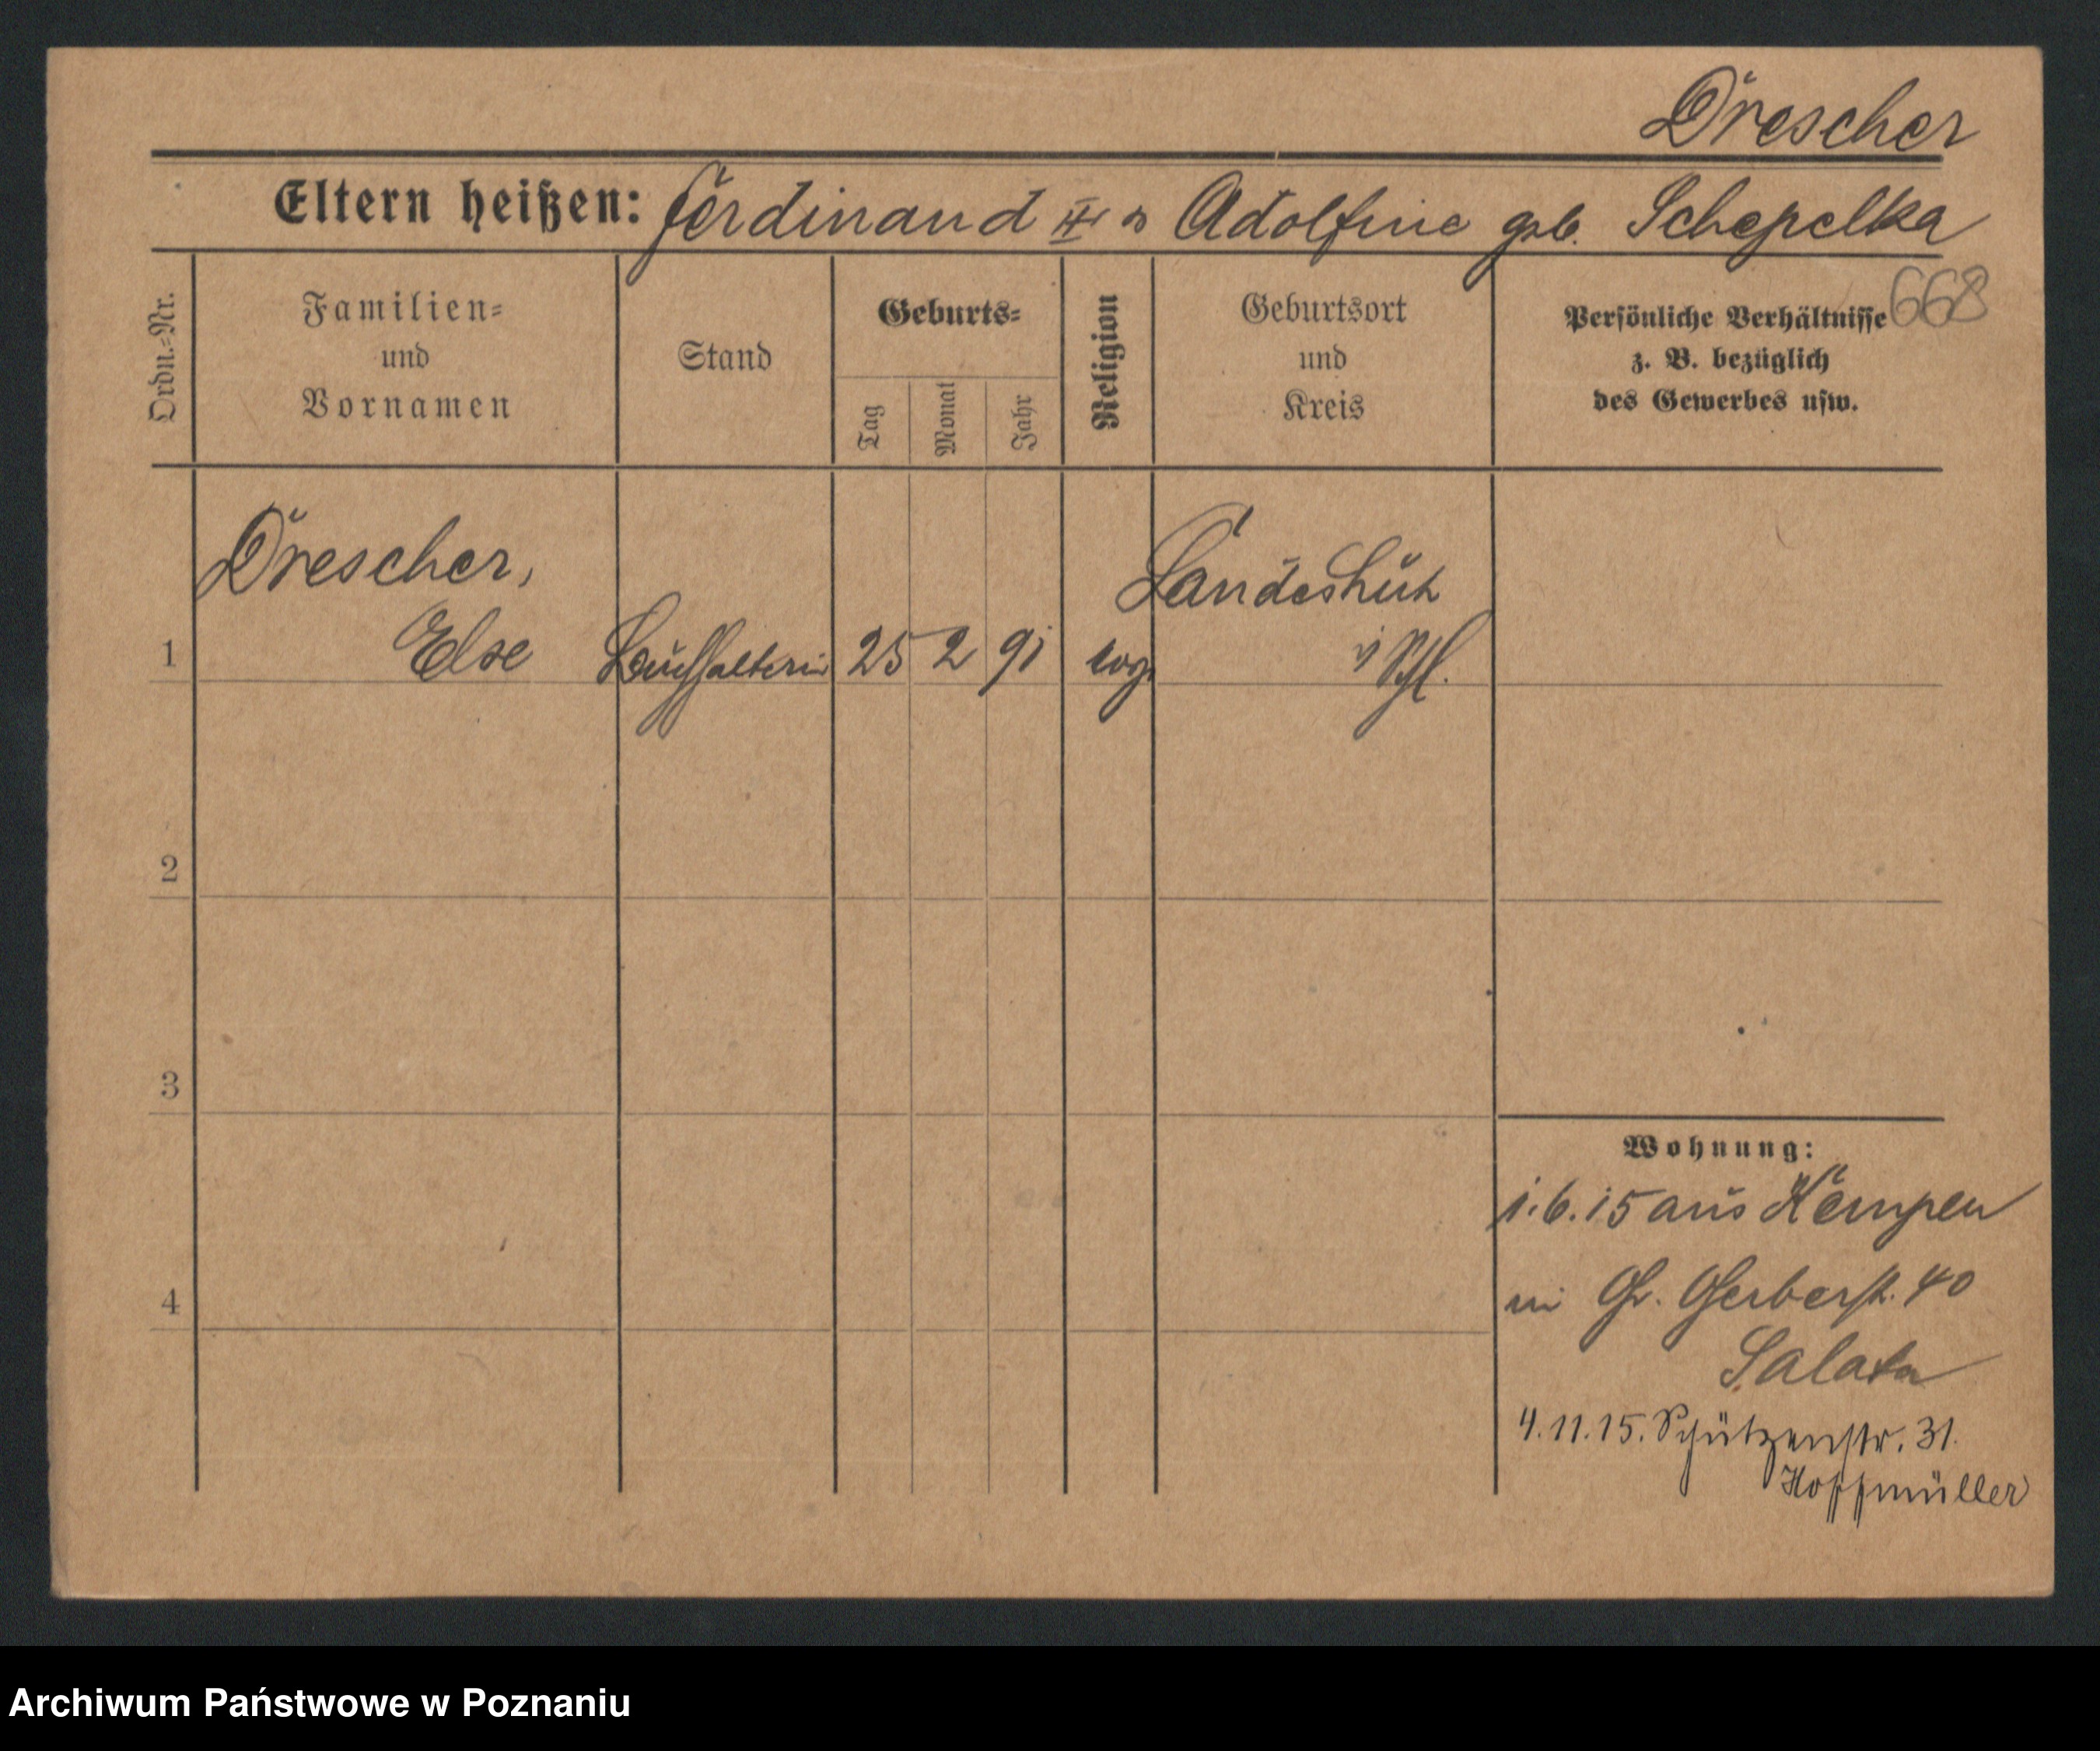 Drescher
Eltern heißen: Ferdinand u. Adolfine geb. Schepelka
668
Ordn.-Nr.
Familien-
und
Vornamen
Stand
Geburts-
Tag
Monat
Jahr
Religion
Geburtsort
und
Kreis
Persönliche Verhältnisse
z. B. bezüglich
des Gewerbes usw.
Drescher,
Landeshut
1 Else Buchhalterin 25 2 91 evg. i/Schl.
2
3
4
Wohnung:
1.6.15 aus Kempen
in Gr. Gerberst. 40
Salata
4.11.15. Schützenstr. 31.
Hoffmüller
Archiwum Państwowe w Poznaniu